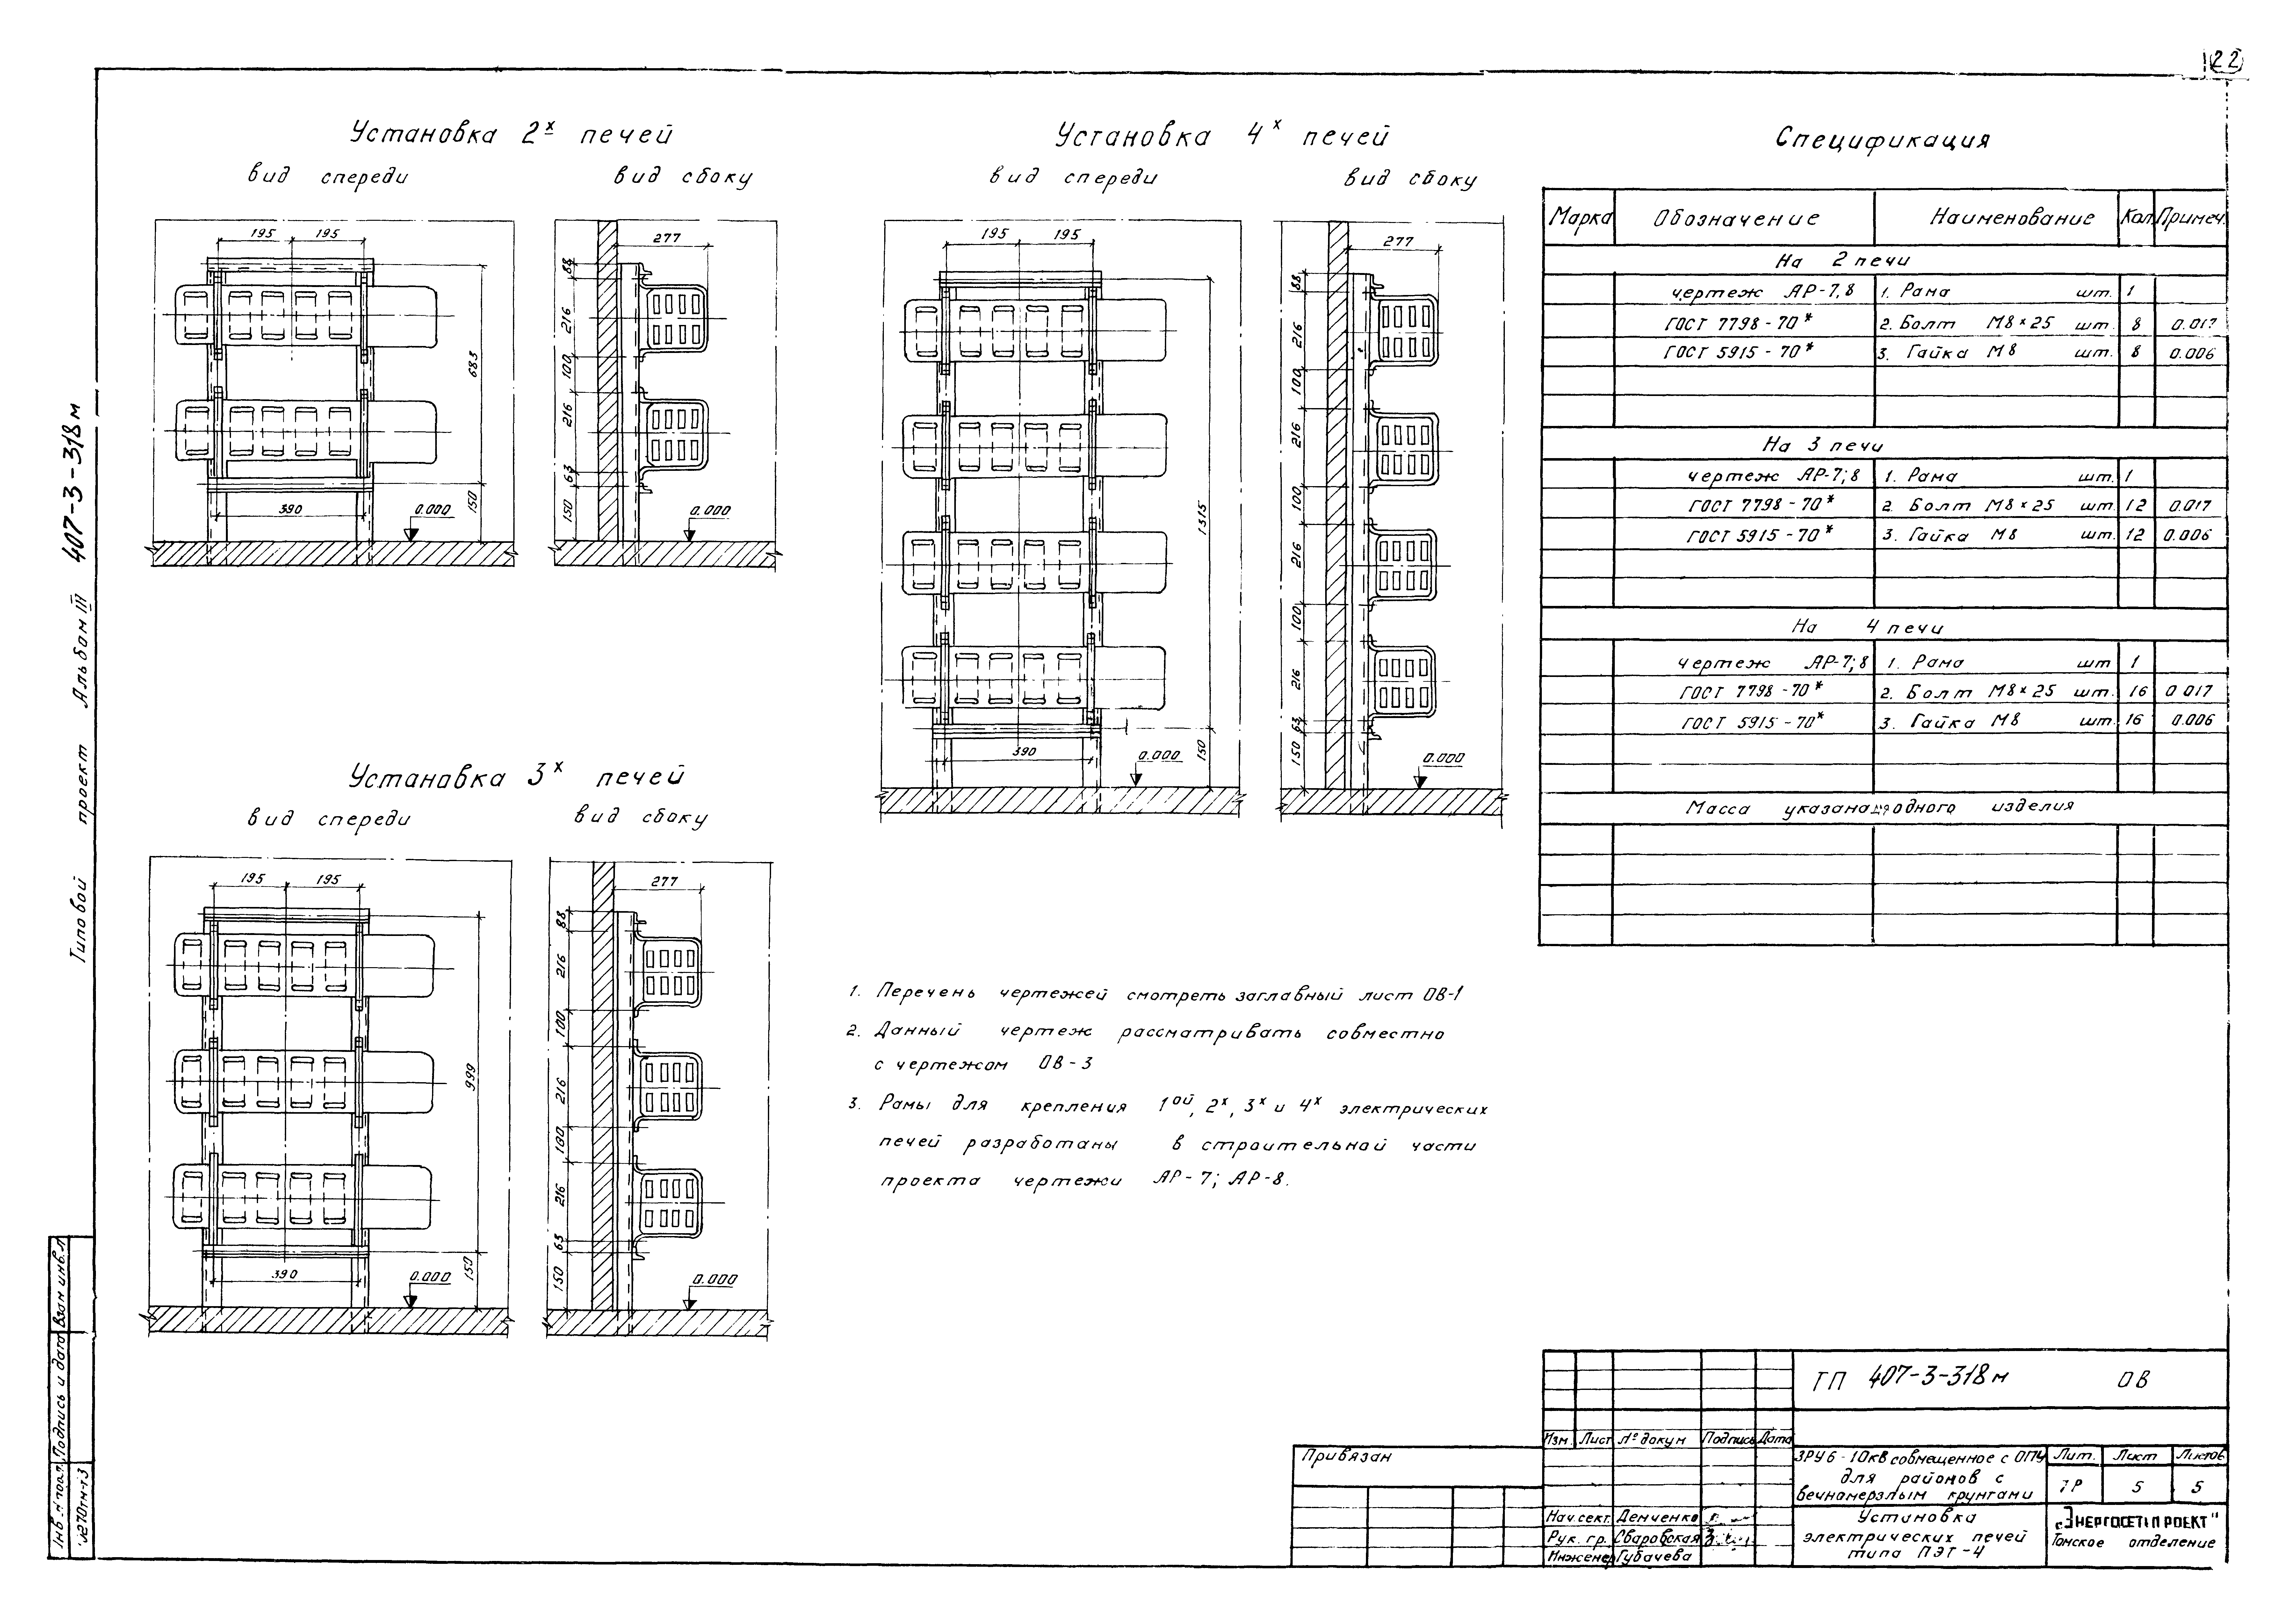 22
Установка 2х печей
вид спереди
вид сбоку
195 195
685
150
390
0.000
277
88
216
100
216
63
150
0.000
Установка 4х печей
вид спереди
вид сбоку
195 195
1315
150
390
0.000
277
88
216
100
216
100
216
100
216
63
150
0.000
Установка 3х печей
вид спереди
вид сбоку
195 195
999
150
390
0.000
277
88
216
100
216
100
216
63
150
0.000
Спецификация
Марка Обозначение Наименование Кол Примеч.
На 2 печи
чертеж АР-7,8 1. Рама шт. 1
ГОСТ 7798-70* 2. Болт М8×25 шт. 8 0.017
ГОСТ 5915-70* 3. Гайка М8 шт. 8 0.006
На 3 печи
чертеж АР-7;8 1. Рама шт. 1
ГОСТ 7798-70* 2. Болт М8×25 шт. 12 0.017
ГОСТ 5915-70* 3. Гайка М8 шт. 12 0.006
На 4 печи
чертеж АР-7;8 1. Рама шт 1
ГОСТ 7798-70* 2. Болт М8×25 шт. 16 0 017
ГОСТ 5915-70* 3. Гайка М8 шт. 16 0.006
Масса указана одного изделия
1. Перечень чертежей смотреть заглавный лист ОВ-1
2. Данный чертеж рассматривать совместно
с чертежом ОВ-3
3. Рамы для крепления 1ой, 2х, 3х и 4х электрических
печей разработаны в строительной части
проекта чертежи АР-7; АР-8.
Типовой проект Альбом III 407-3-318м
Инв. № подл. Подпись и дата Взам инв. №
270тм-т3
Привязан
Изм. Лист № докум Подпись Дата
Нач.сект. Демченко
Рук. гр. Сваровская
Инженер Губачева
ТП 407-3-318м ОВ
ЗРУ 6-10кВ совмещенное с ОПУ
для районов с
вечномерзлым грунтами
Лит. Лист Листов
ТР 5 5
Установка
электрических печей
типа ПЭТ-4
"ЭНЕРГОСЕТЬПРОЕКТ"
Томское отделение